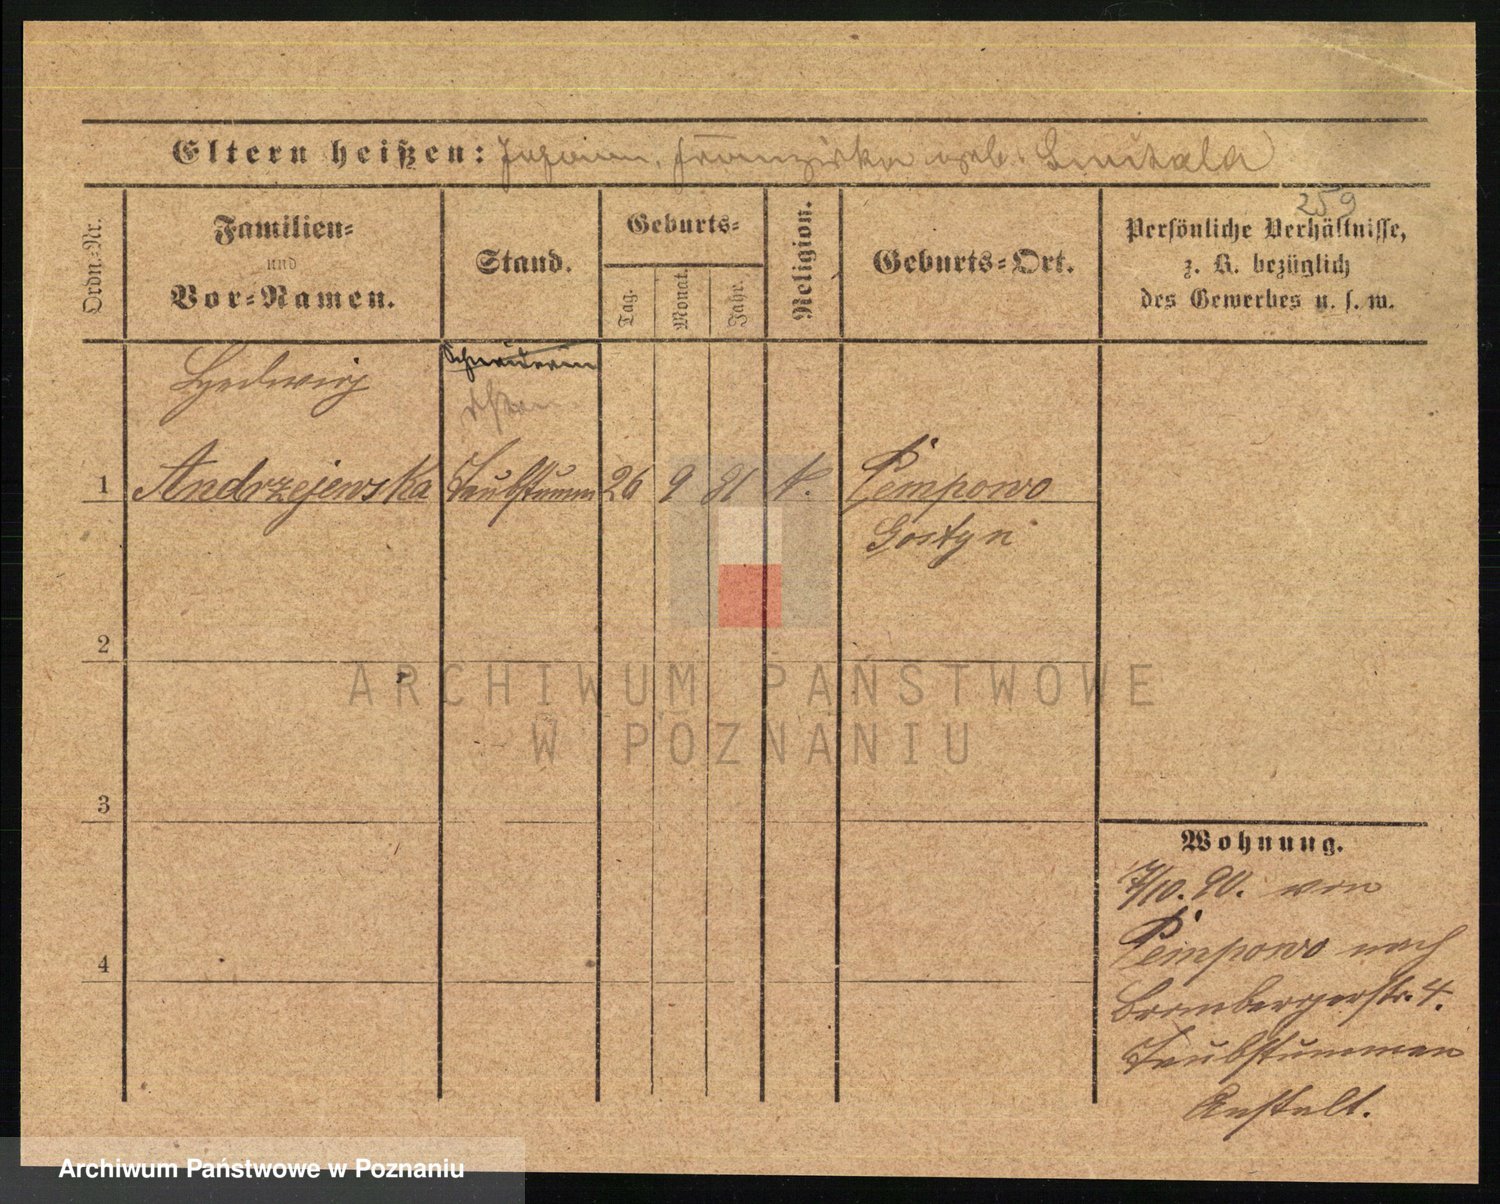 Eltern heißen: Johann, Franziska geb. Smukala
259
Ordn.-Nr.
Familien-
und
Vor-Namen.
Stand.
Geburts-
Tag.
Monat.
Jahr.
Religion.
Geburts-Ort.
Persönliche Verhältnisse,
z. B. bezüglich
des Gewerbes u. s. w.
Hedwig
Schneiderin
1 Andrzejewska Taubstumm 26 9 81 k. Pempowo
Gostyn
2
3
4
Wohnung.
7/10. 90. von
Pempowo nach
Brombergerstr. 4.
Taubstummen
Anstalt.
ARCHIWUM PAŃSTWOWE
W POZNANIU
Archiwum Państwowe w Poznaniu